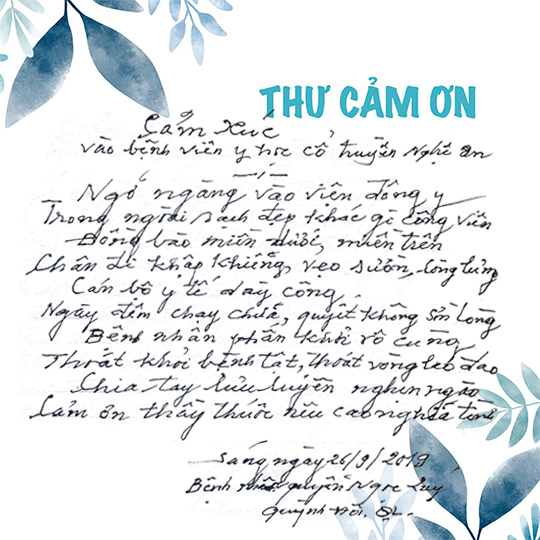 THƯ CẢM ƠN
Cảm xúc
vào bệnh viện y học cổ truyền Nghệ An
Ngỡ ngàng vào viện đông y
Trong ngoài sạch đẹp khác gì công viên
Đồng bào miền dưới, miền trên
Chân đi khập khiễng, vẹo sườn, còng lưng
Cán bộ y tế dày công
Ngày đêm chạy chữa, quyết không sờn lòng
Bệnh nhân phấn khởi vô cùng
Thoát khỏi bệnh tật, thoát vòng lao đao
Chia tay lưu luyến nghẹn ngào
Cảm ơn thầy thuốc nêu cao nghĩa tình
Sáng ngày 26/9/2019
Bệnh nhân Nguyễn Ngọc
Quỳnh Đôi, QL.